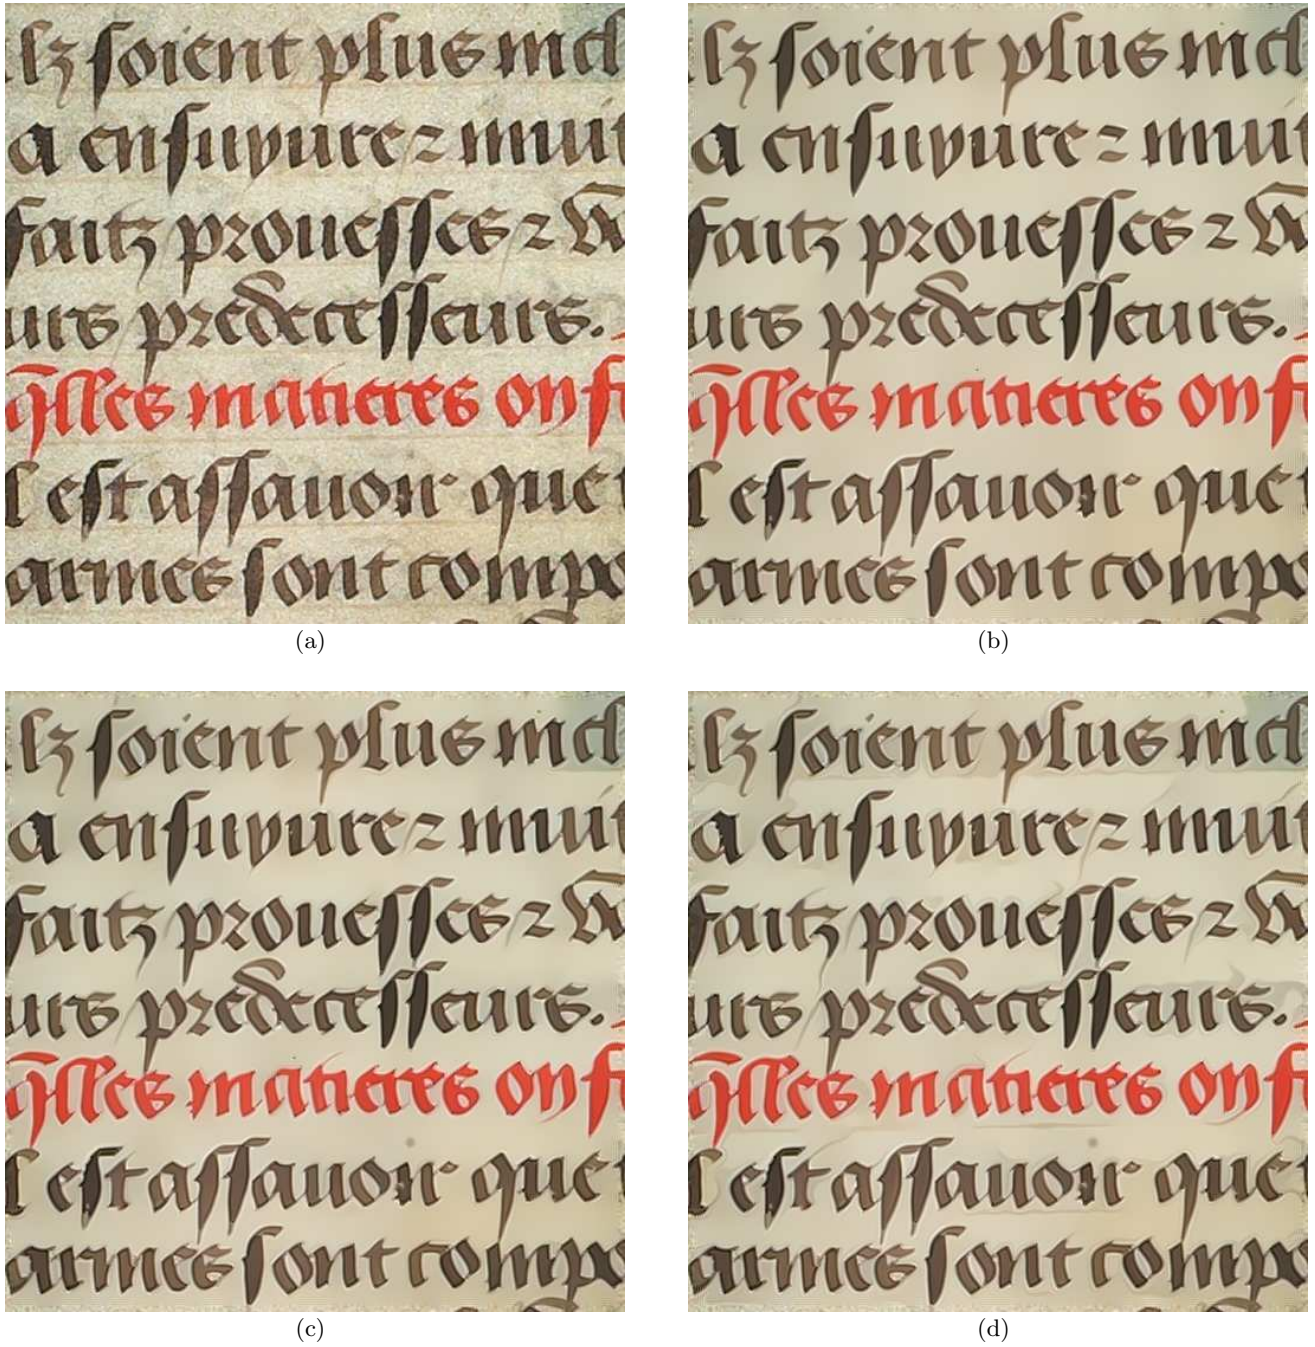 lz soient plus mcl
a ensuyure ⁊ muit
faitz prouesses ⁊ v
urs predecesseurs.
q̄lles matieres on f
l est assauoir que
armes sont compo
(a)
lz soient plus mcl
a ensuyure ⁊ muit
faitz prouesses ⁊ v
urs predecesseurs.
q̄lles matieres on f
l est assauoir que
armes sont compo
(b)
lz soient plus mcl
a ensuyure ⁊ muit
faitz prouesses ⁊ v
urs predecesseurs.
q̄lles matieres on f
l est assauoir que
armes sont compo
(c)
lz soient plus mcl
a ensuyure ⁊ muit
faitz prouesses ⁊ v
urs predecesseurs.
q̄lles matieres on f
l est assauoir que
armes sont compo
(d)